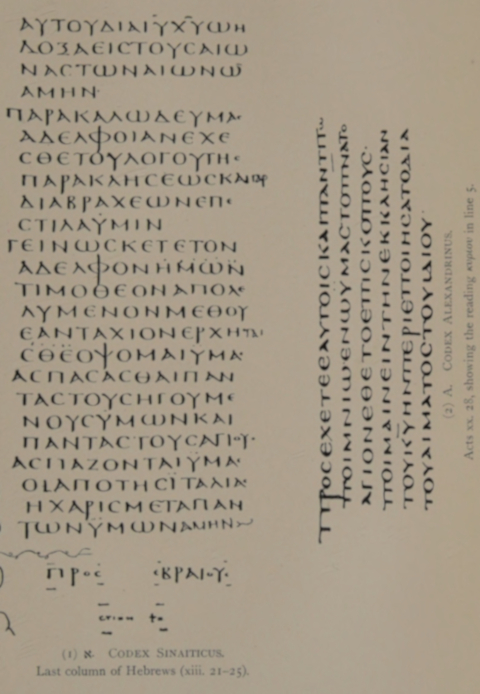 ΑΥΤΟΥΔΙΑΙΥΧΥΩΗ
ΔΟΞΑΕΙCΤΟΥCΑΙΩ
ΝΑCΤΩΝΑΙΩΝΩ
ΑΜΗΝ
ΠΑΡΑΚΑΛΩΔΕΥΜΑ
ΑΔΕΛΦΟΙΑΝΕΧΕ
CΘΕΤΟΥΛΟΓΟΥΤΗ
ΠΑΡΑΚΛΗCΕΩCΚΑΙΓΑΡ
ΔΙΑΒΡΑΧΕΩΝΕΠΕ
CΤΙΛΑΫΜΙΝ
ΓΕΙΝΩCΚΕΤΕΤΟΝ
ΑΔΕΛΦΟΝΗΜΩΝ
ΤΙΜΟΘΕΟΝΑΠΟΛΕ
ΛΥΜΕΝΟΝΜΕΘΟΥ
ΕΑΝΤΑΧΙΟΝΕΡΧΗΤΑΙ
CΘΕΟΨΟΜΑΙΥΜΑ
ΑCΠΑCΑCΘΑΙΠΑΝ
ΤΑCΤΟΥCΗΓΟΥΜΕ
ΝΟΥCΥΜΩΝΚΑΙ
ΠΑΝΤΑCΤΟΥCΑΓΙΟΥC
ΑCΠΑΖΟΝΤΑΙΫΜΑ
ΟΙΑΠΟΤΗCΪΤΑΛΙΑ
ΗΧΑΡΙCΜΕΤΑΠΑΝ
ΤΩΝΫΜΩΝΑΜΗΝ
ΠΡΟC ΕΒΡΑΙΟΥC
(1) א. CODEX SINAITICUS.
Last column of Hebrews (xiii. 21-25).
ΠΡΟCΕΧΕΤΕΕΑΥΤΟΙCΚΑΙΠΑΝΤΙΤΩ
ΠΟΙΜΝΙΩΕΝΩΫΜΑCΤΟΠΝΑΤΟ
ΑΓΙΟΝΕΘΕΤΟΕΠΙCΚΟΠΟΥC·
ΠΟΙΜΑΙΝΕΙΝΤΗΝΕΚΚΛΗCΙΑΝ
ΤΟΥΚΥΗΝΠΕΡΙΕΠΟΙΗCΑΤΟΔΙΑ
ΤΟΥΑΙΜΑΤΟCΤΟΥΙΔΙΟΥ·
(2) A. CODEX ALEXANDRINUS.
Acts xx. 28, showing the reading κυριου in line 5.